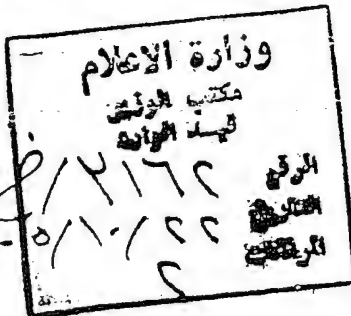 وزارة الاعلام
مكتب
قيد الوارد
الرقم ٢١٦٢/
التاريخ ٢٢/١٠/
المرفقات ٢